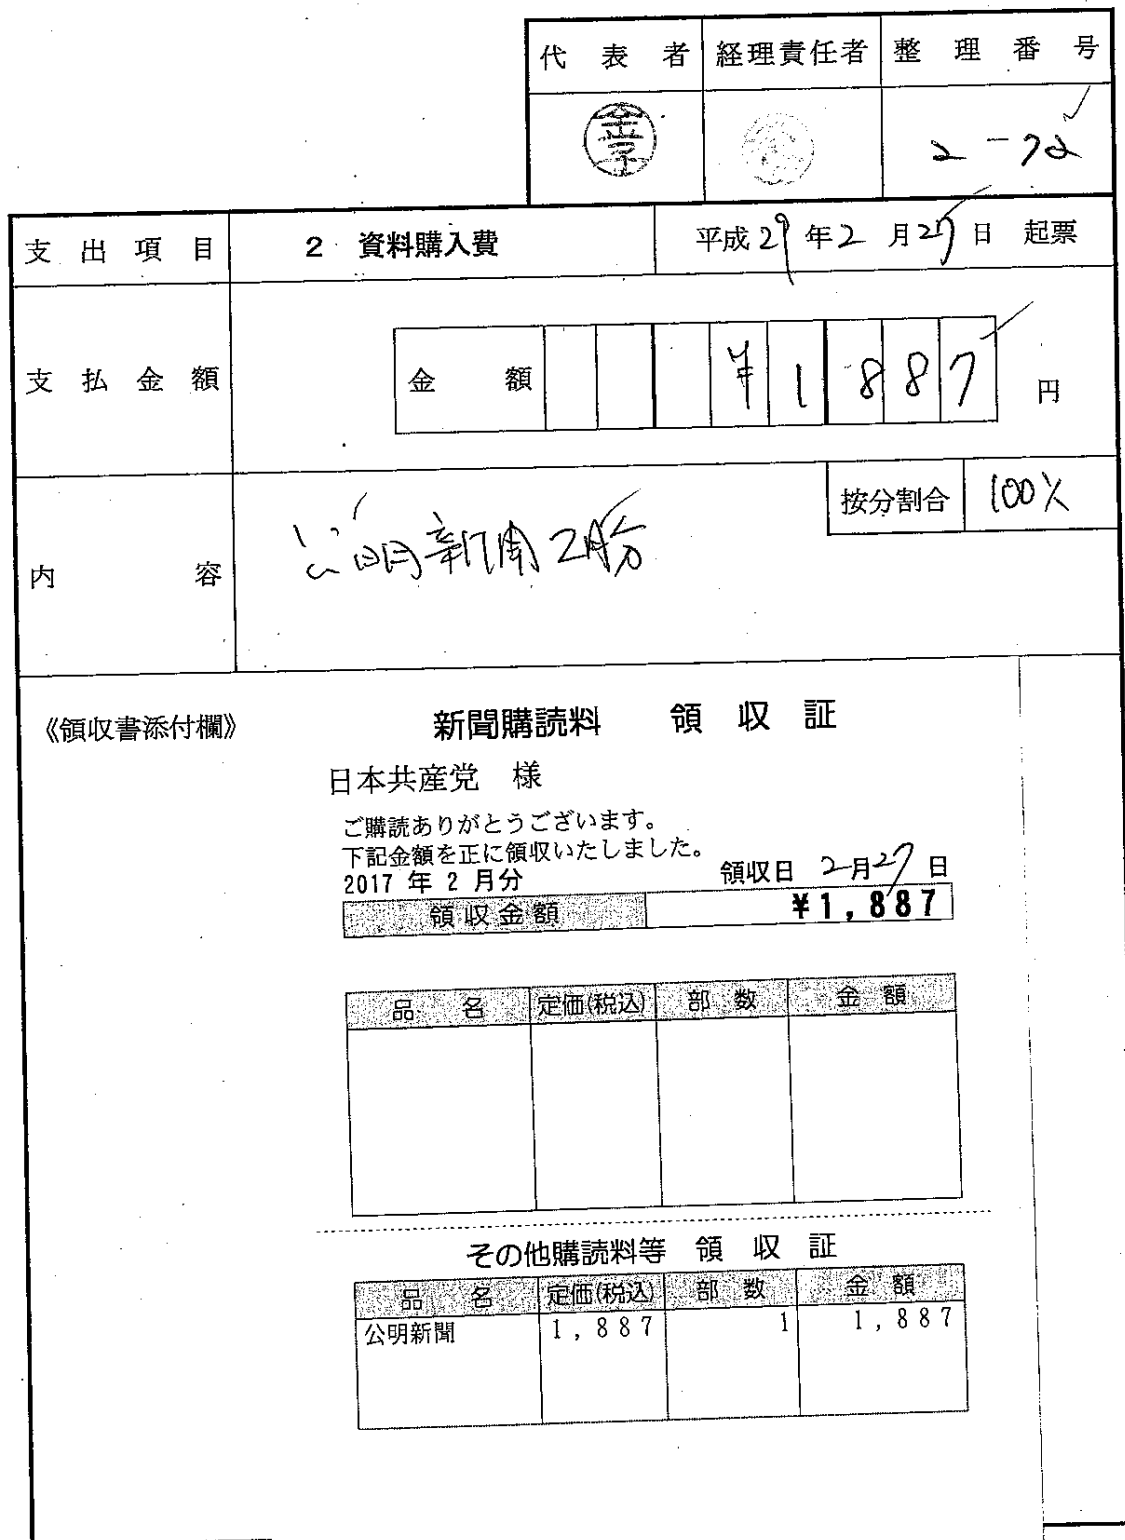 代表者 経理責任者 整理番号
2-72
支出項目 2 資料購入費 平成29年2月27日 起票
支払金額 金額 ¥1887 円
内容 公明新聞2月分 按分割合 100%
《領収書添付欄》 新聞購読料 領収証
日本共産党 様
ご購読ありがとうございます。
下記金額を正に領収いたしました。
2017年2月分 領収日 2月27日
領収金額 ¥1,887
品名 定価(税込) 部数 金額
その他購読料等 領収証
品名 定価(税込) 部数 金額
公明新聞 1,887 1 1,887